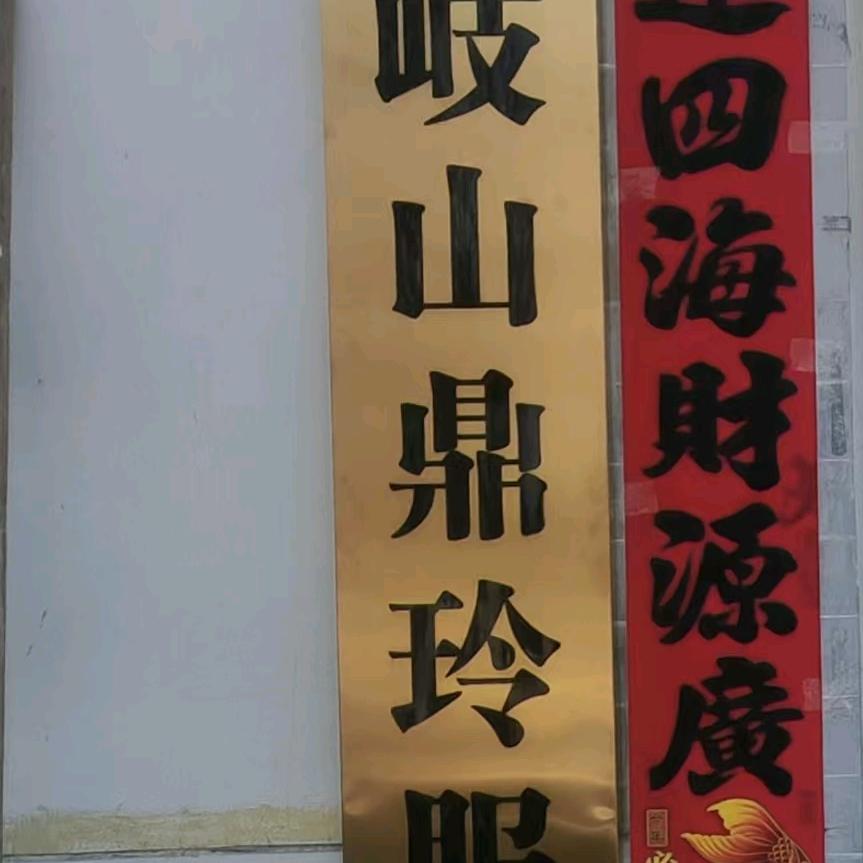 岐山鼎玲
四海財源廣